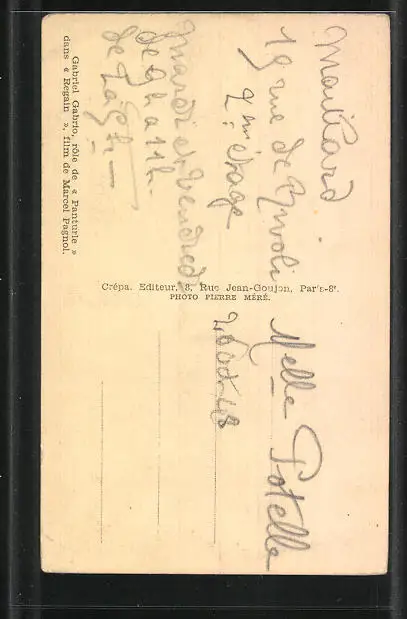 Gabriel Gabrio, rôle de « Panturle »
dans « Regain », film de Marcel Pagnol.
Maillard
19 rue de Rivoli
2me étage
Mardi et Vendredi
de 9h a 11h
de
Crépa. Editeur, 8, Rue Jean-Goujon, Paris-8e.
PHOTO PIERRE MÉRÉ.
Melle Potelle